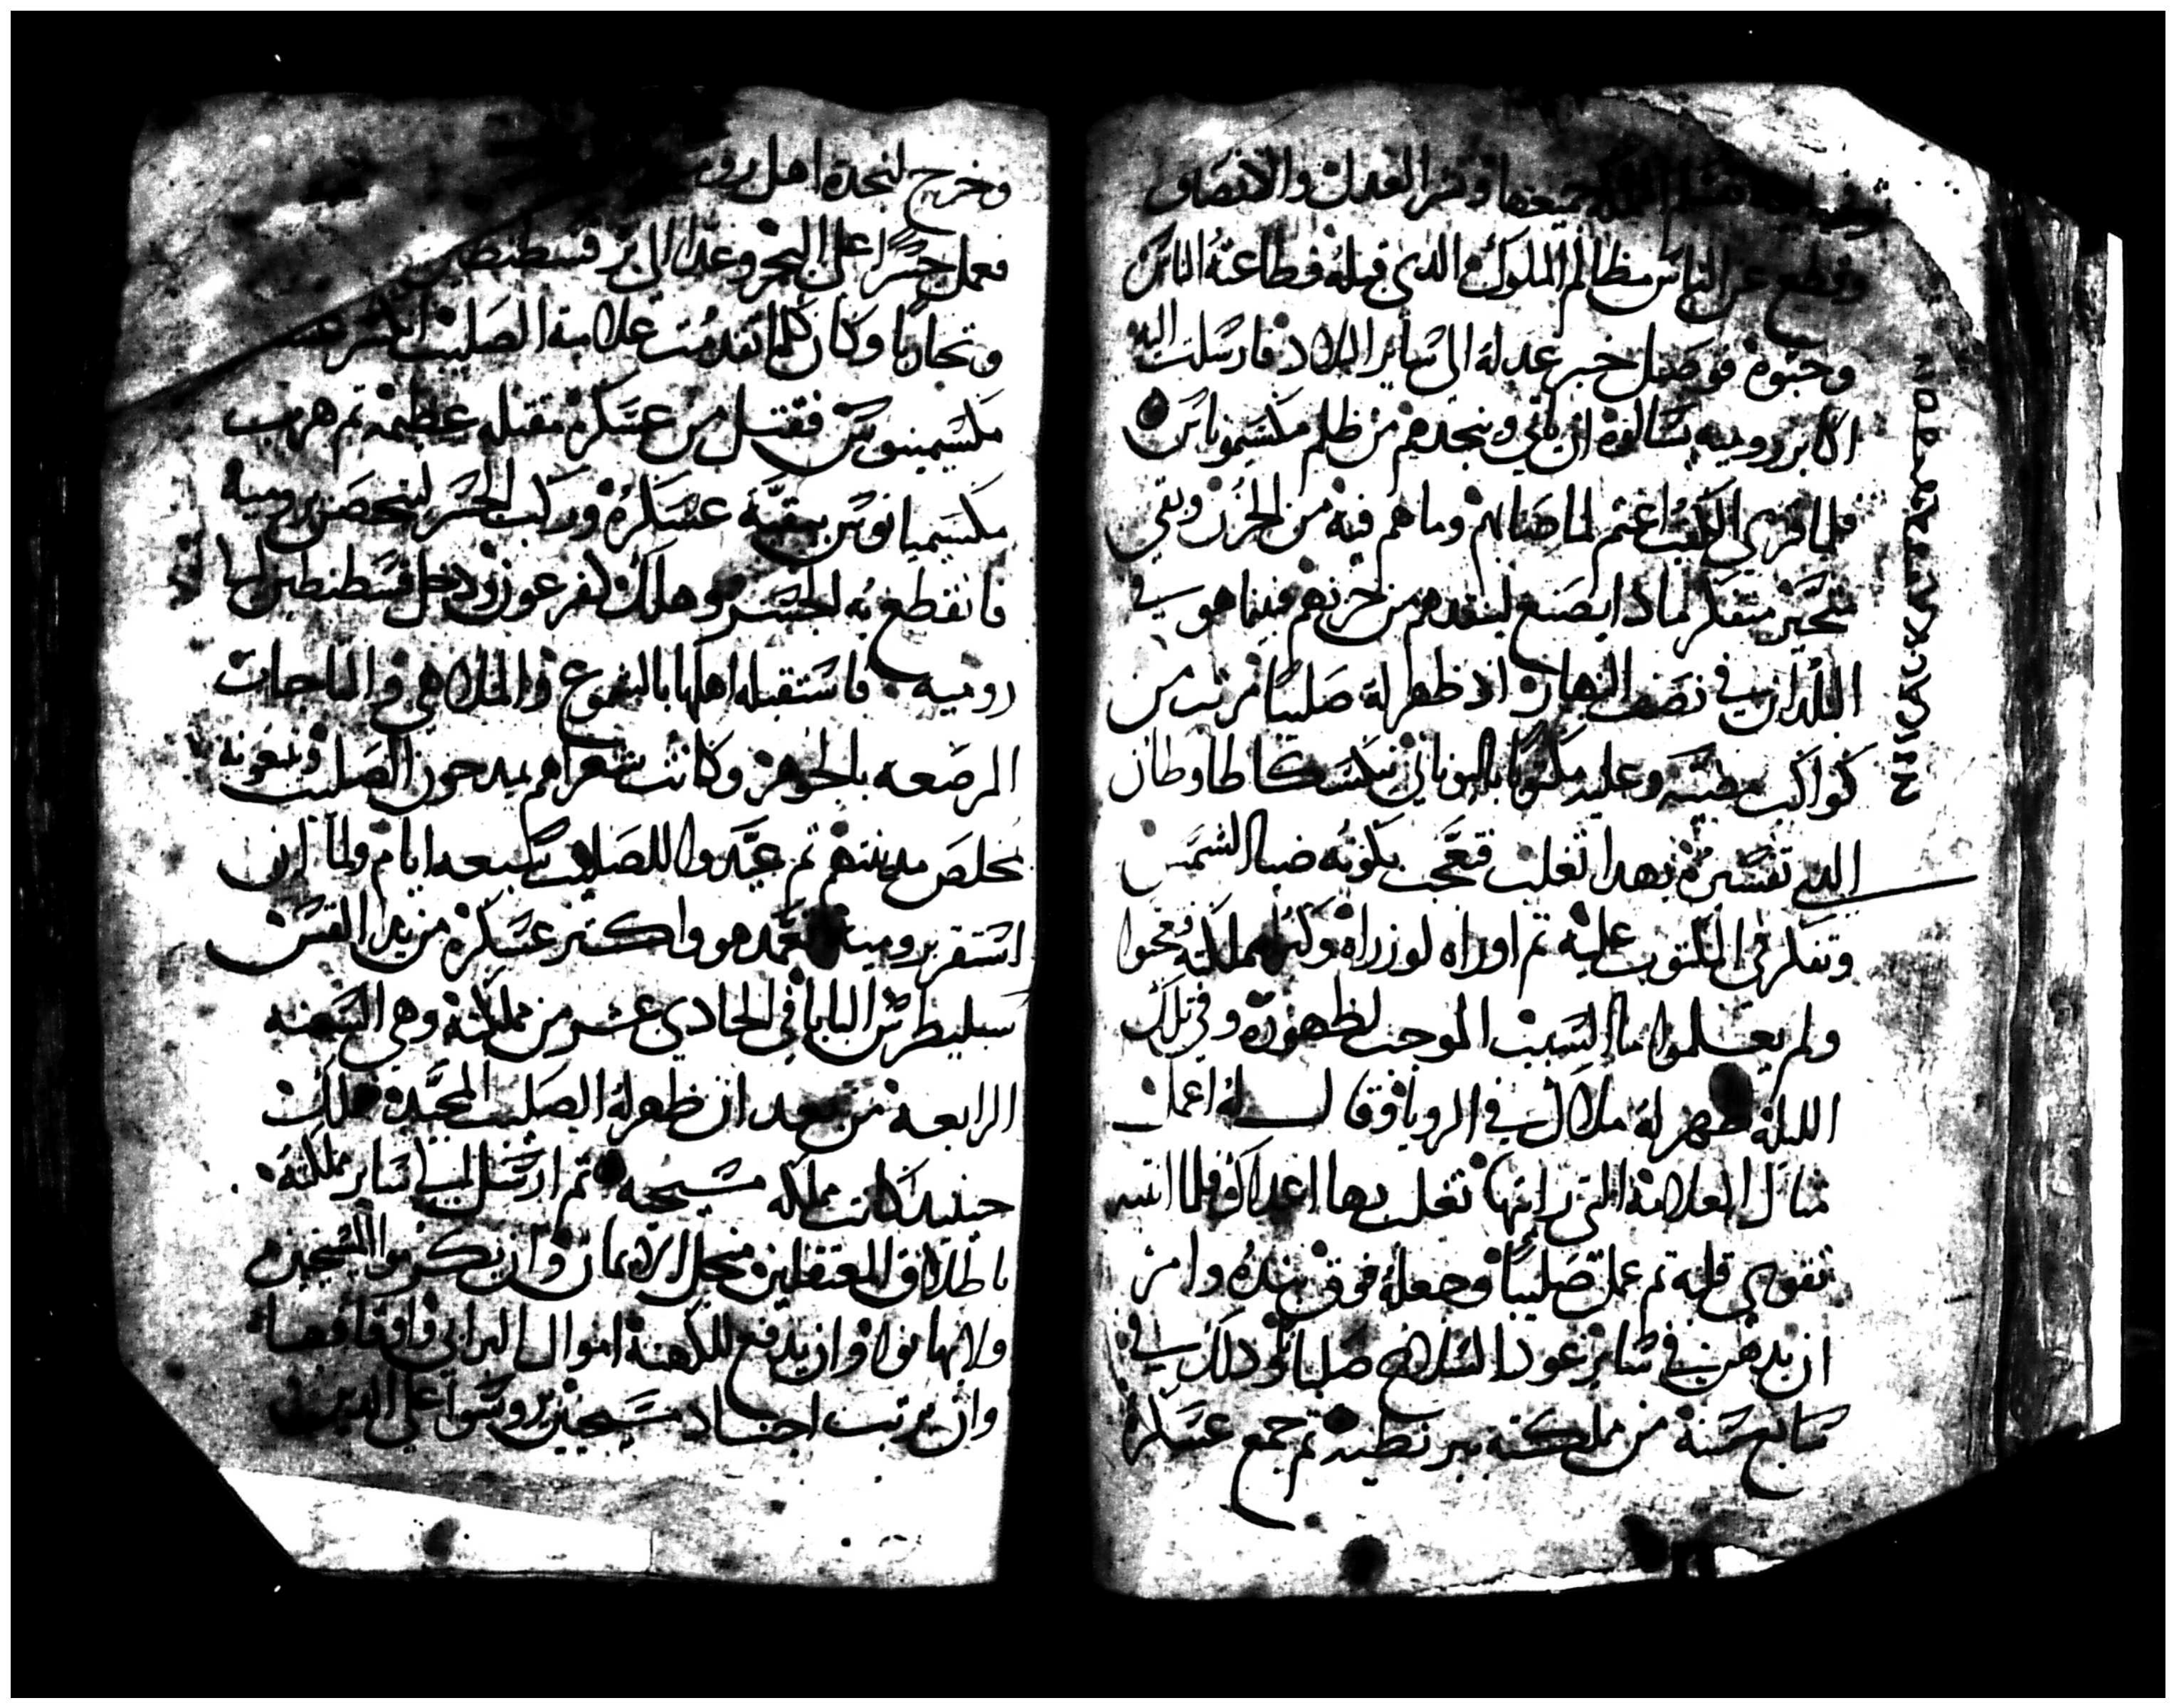 جميعها ونشر العدل والانصاف
وقطع عن الناس مظالم الملوك الدي قبله فطاعته الناس
وحبوه فوصل خبر عدله الى ساير البلاد فارسلت اليه
اكابر روميه يسالوه ان ياتي وينجدهم من ظلم مكسيمونيانوس
فلما قرى الكتب اغتم لما هم فيه من الحزن وبقي
متحير متفكر لمادا يصنع لينقدهم من حزنهم فبينما هو في
في نصف النهار اد ظهر له صليبا مرتب من
كواكب مضيه وعليه مكتوبا باليوناني
الدي تفسيره بهدا تغلب فتعجب بكونه ضيا الشمس
وتفكر في المكتوب عليه تم اوراه لوزراه وكبرا مملكته
ولم يعلموا ما السبب الموجب لظهوره وفي تلك
الليله ظهر له ملاك في الرويا وقال له اعمل
مثال العلامة التي رايتها تغلب بها اعداك فلما انتبه
تقوى قلبه تم عمل صليبا وجعله فوق بنده وامر
ان يدهن في ساير عود السلاح صلبانا ودلك في
سابع سنة من مملكته ببرنطيه تم جمع عسكره
وخرج لنجدة اهل روميه
فعمل جسرا على البحر وعدا الى بر قسطنطين
وتحاربا وكان كلما تقدمت علامة الصليب انكسر عسكر
مكسيمينوس فقتل من عسكره مقتله عظيمه تم هرب
مكسيميانوس ببقية عسكره وركب الجسر ليتحصن بروميه
فانقطع به الجسر وهلك كفرعون ودخل قسطنطين الى
روميه فاستقبله اهلها بالشموع والملاهي والتاجات
المرصعه بالجوهر وكانت شعراهم يمدحون الصليب وينعوته
مخلص مدينتهم تم عيدوا للصليب سبعه ايام ولما ان
استقر بروميه تعمد هو واكتر عسكره من يد القس
سليطرس البابا في الحادي عشر من مملكته وهي السنه
الرابعة من بعد ان ظهر له الصليب المجيد
حينيد كانت مملكه مسيحيه تم ارسل الى ساير مملكته
باطلاق المعتقلين من اجل الايمان وان يكرموا المسيحيين
ولا يهانوا وان يدفع للكهنة اموال البرابي واوقافها
وان يرتب اجناد مسيحيين يروسوا على الدين في